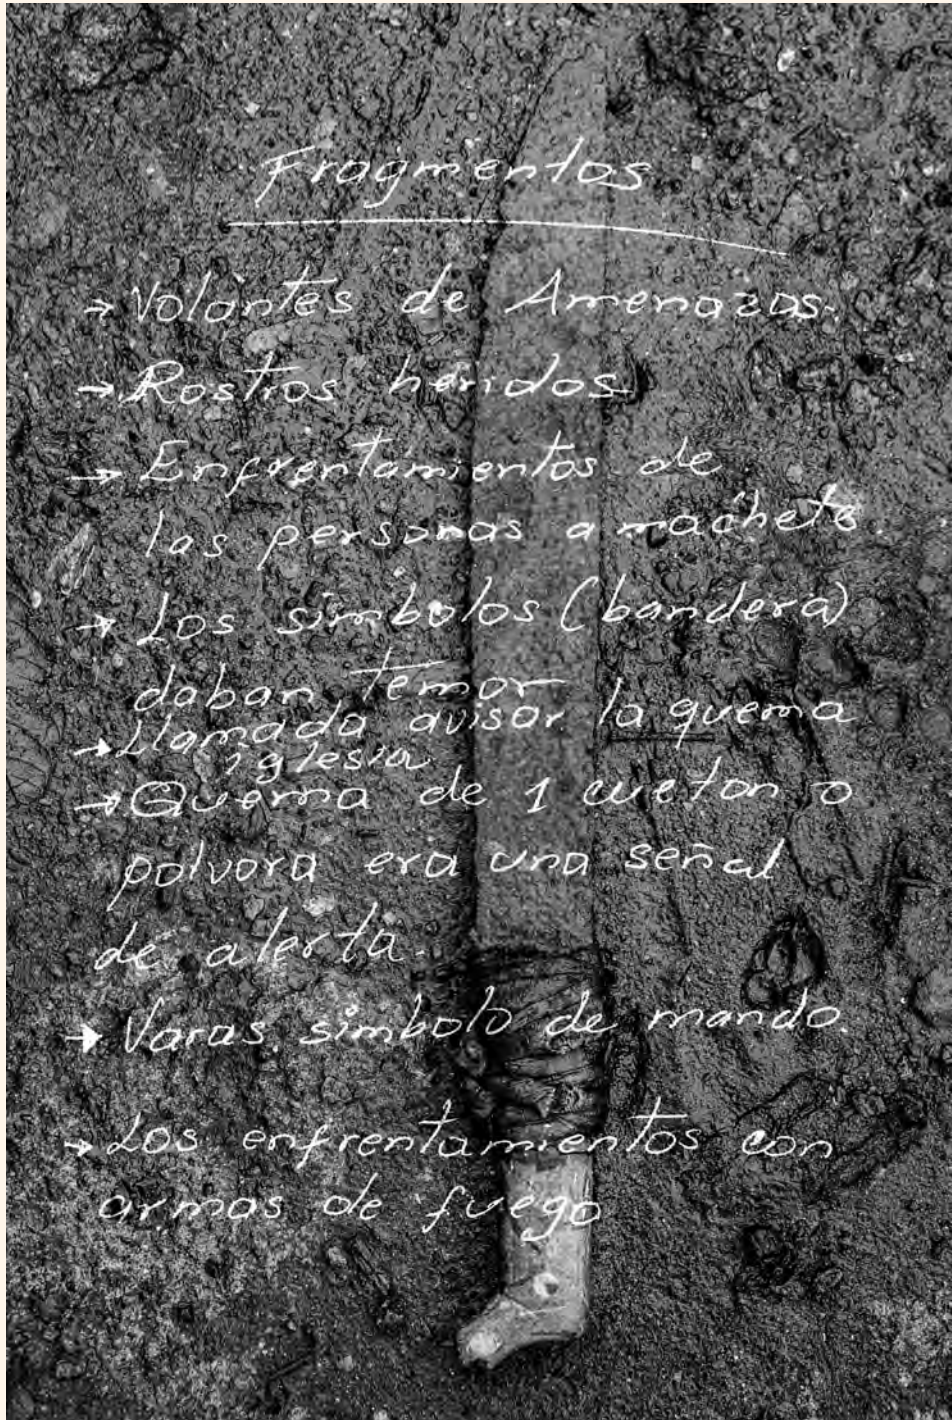 Fragmentos
→ Volantes de Amenazas.
→ Rostros heridos
→ Enfrentamientos de
las personas a machete
→ Los simbolos (bandera)
daban temor
→ Llamada avisar la quema
iglesia
→ Quema de 1 cueton o
polvora era una señal
de alerta.
→ Varas simbolo de mando.
→ Los enfrentamientos con
armas de fuego